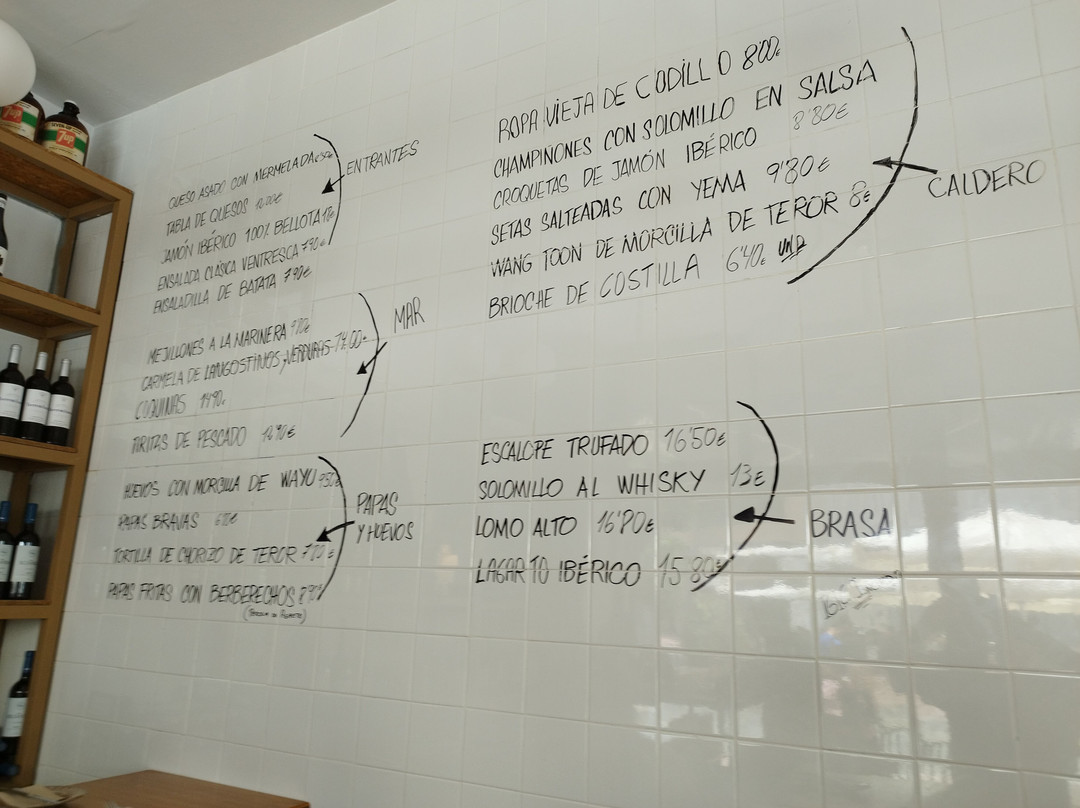 QUESO ASADO CON MERMELADA
TABLA DE QUESOS
JAMÓN IBÉRICO 100% BELLOTA
ENSALADA CLÁSICA VENTRESCA 7'90€
ENSALADILLA DE BATATA 7'90€
ENTRANTES
MEJILLONES A LA MARINERA
CARMELA DE LANGOSTINOS y VERDURAS 14,00€
COQUINAS 14'90€
TIRITAS DE PESCADO 12'90€
MAR
HUEVOS CON MORCILLA DE WAYU
PAPAS BRAVAS
TORTILLA DE CHORIZO DE TEROR
PAPAS FRITAS CON BERBERECHOS
PAPAS
Y HUEVOS
ROPA VIEJA DE CODILLO 8'00€
CHAMPIÑONES CON SOLOMILLO EN SALSA
8'80€
CROQUETAS DE JAMÓN IBÉRICO
SETAS SALTEADAS CON YEMA 9'80€
WANG TOON DE MORCILLA DE TEROR 8€
BRIOCHE DE COSTILLA 6'40€ UND
CALDERO
ESCALOPE TRUFADO 16'50€
SOLOMILLO AL WHISKY 13€
LOMO ALTO 16'80€
LAGARTO IBÉRICO 15'80€
BRASA
7up